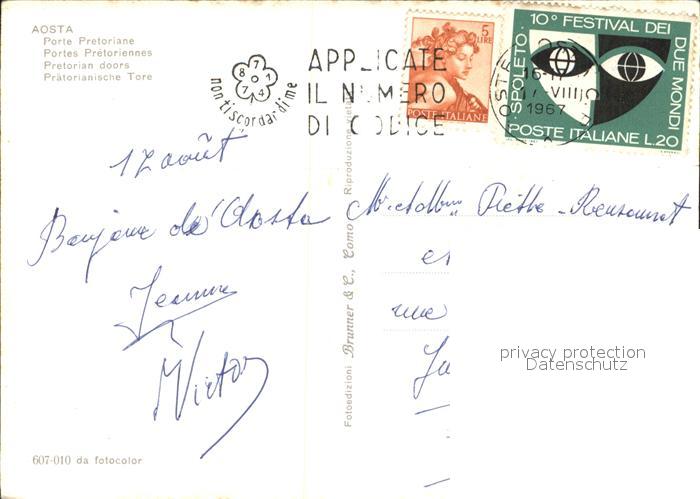 AOSTA
Porte Pretoriane
Portes Prétoriennes
Pretorian doors
Prätorianische Tore
8 7 1 4 7 0
nontiscordardime
APPLICATE
IL NUMERO
DI CODICE
5
LIRE
POSTE ITALIANE
10° FESTIVAL DEI DUE MONDI
SPOLETO
POSTE ITALIANE L.20
16-17
17 VIII
1967
12 août
Bonjour de Aosta
Jeanne
Victor
Piette
une
privacy protection
Datenschutz
Fotoedizioni Brunner & C., Como Riproduzione vietata
607-010 da fotocolor